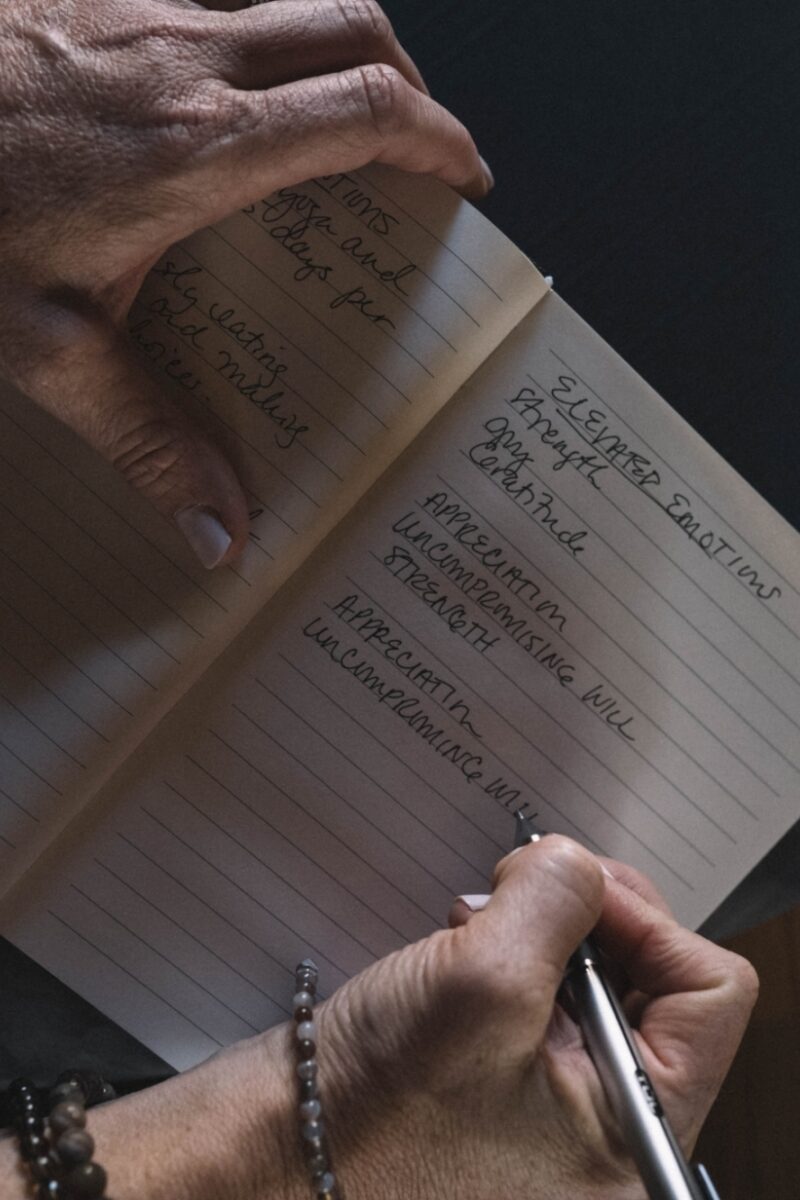 TIONS
yoga and
days per
sly eating
and making
choices.
ELEVATED EMOTIONS
Strength
Gratitude
APPRECIATION
UNCOMPROMISING WILL
STRENGTH
APPRECIATION
UNCOMPROMINCE WILL